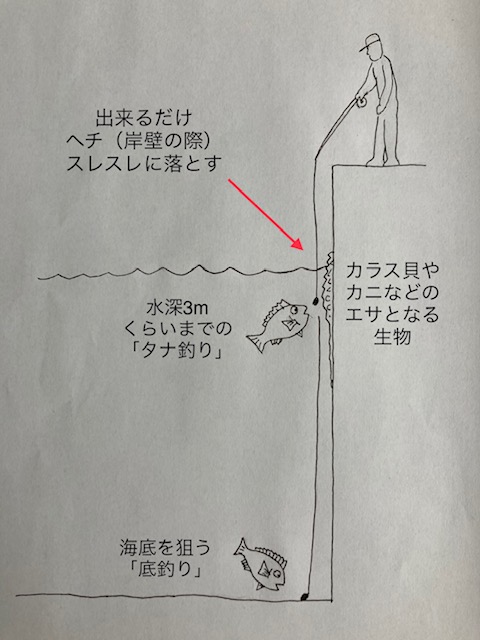 出来るだけ
ヘチ（岸壁の際）
スレスレに落とす
カラス貝や
カニなどの
エサとなる
生物
水深3m
くらいまでの
「タナ釣り」
海底を狙う
「底釣り」